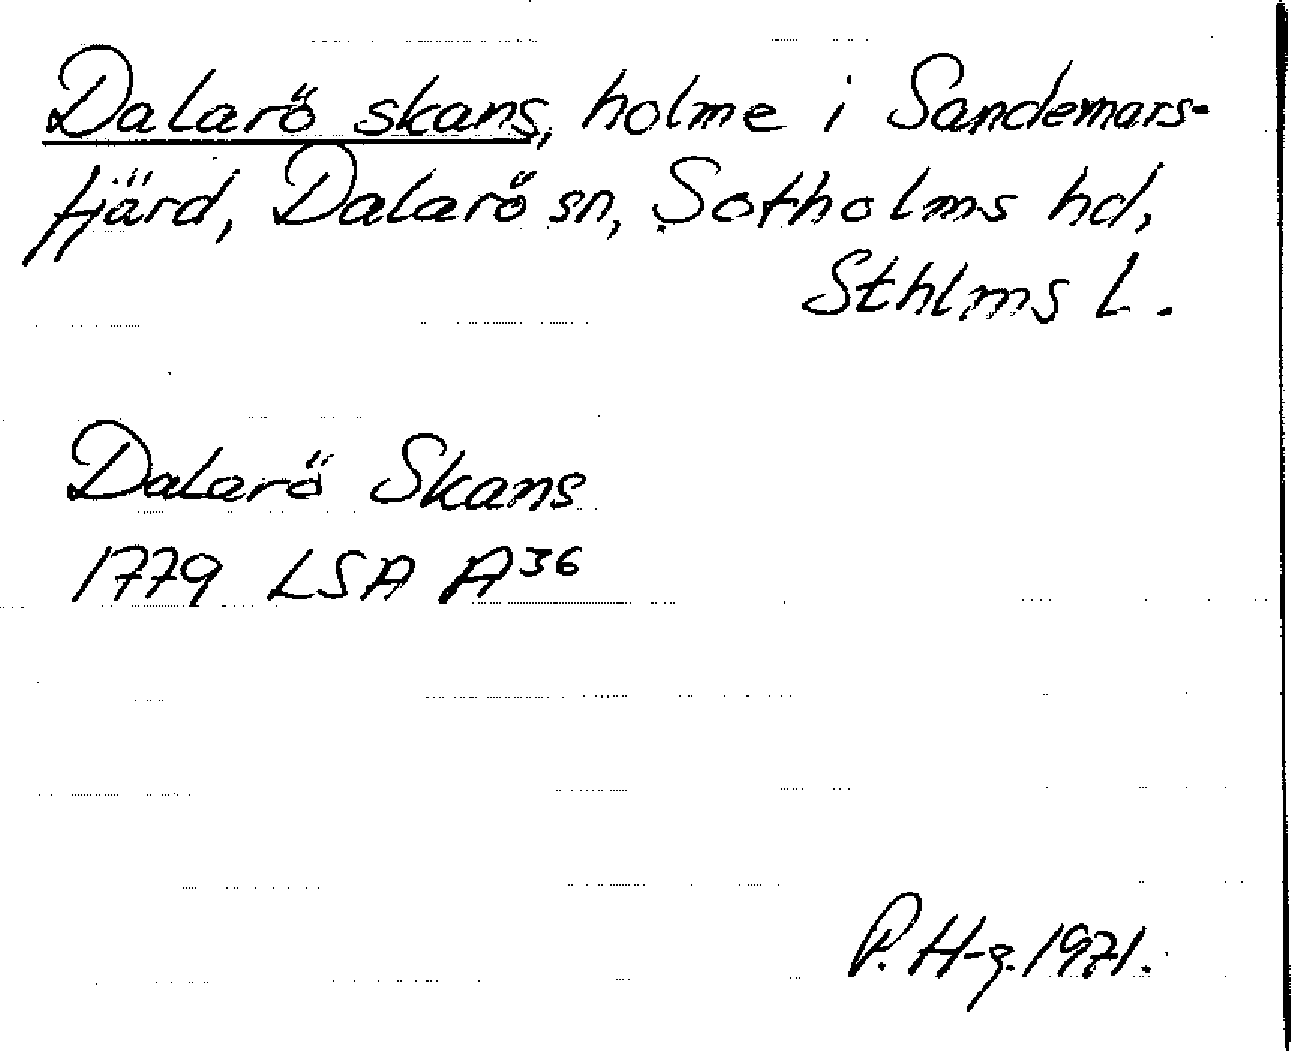 Dalarö skans, holme i Sandemars-
fjärd, Dalarö sn, Sotholms hd,
Sthlms l.
Dalarö Skans
1779 LSA A36
P. H-g. 1971.